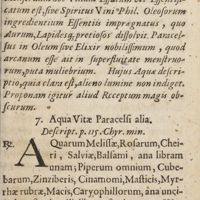 catum est, sive Spiritus Vini Phil. Oleosorum
ingredientium Essentiis impregnatus, quo
Aurum, Lapidesq; pretiosos dissolvit Paracel-
sus in Oleum sive Elixir nobilissimum, quod
arcanum esse ait in superfluitate menstruo-
rum, puta muliebrium. Hujus Aquæ descri-
ptio, quia clara est, alieno lumine non indiget.
Proponam igitur aliud Receptum magis ob-
scurum.
7. Aqua Vitæ Paracelsi alia.
Descript. p. 115. Chyr. min.
℞. AQuarum Melissæ, Rosarum, Chei-
ri, Salviæ, Balsami, ana libram
unam; Piperum omnium, Cube-
barum, Zinziberis, Cinamomi, Masticis, Myr-
rhæ rubræ, Macis, Caryophillorum, ana unci-